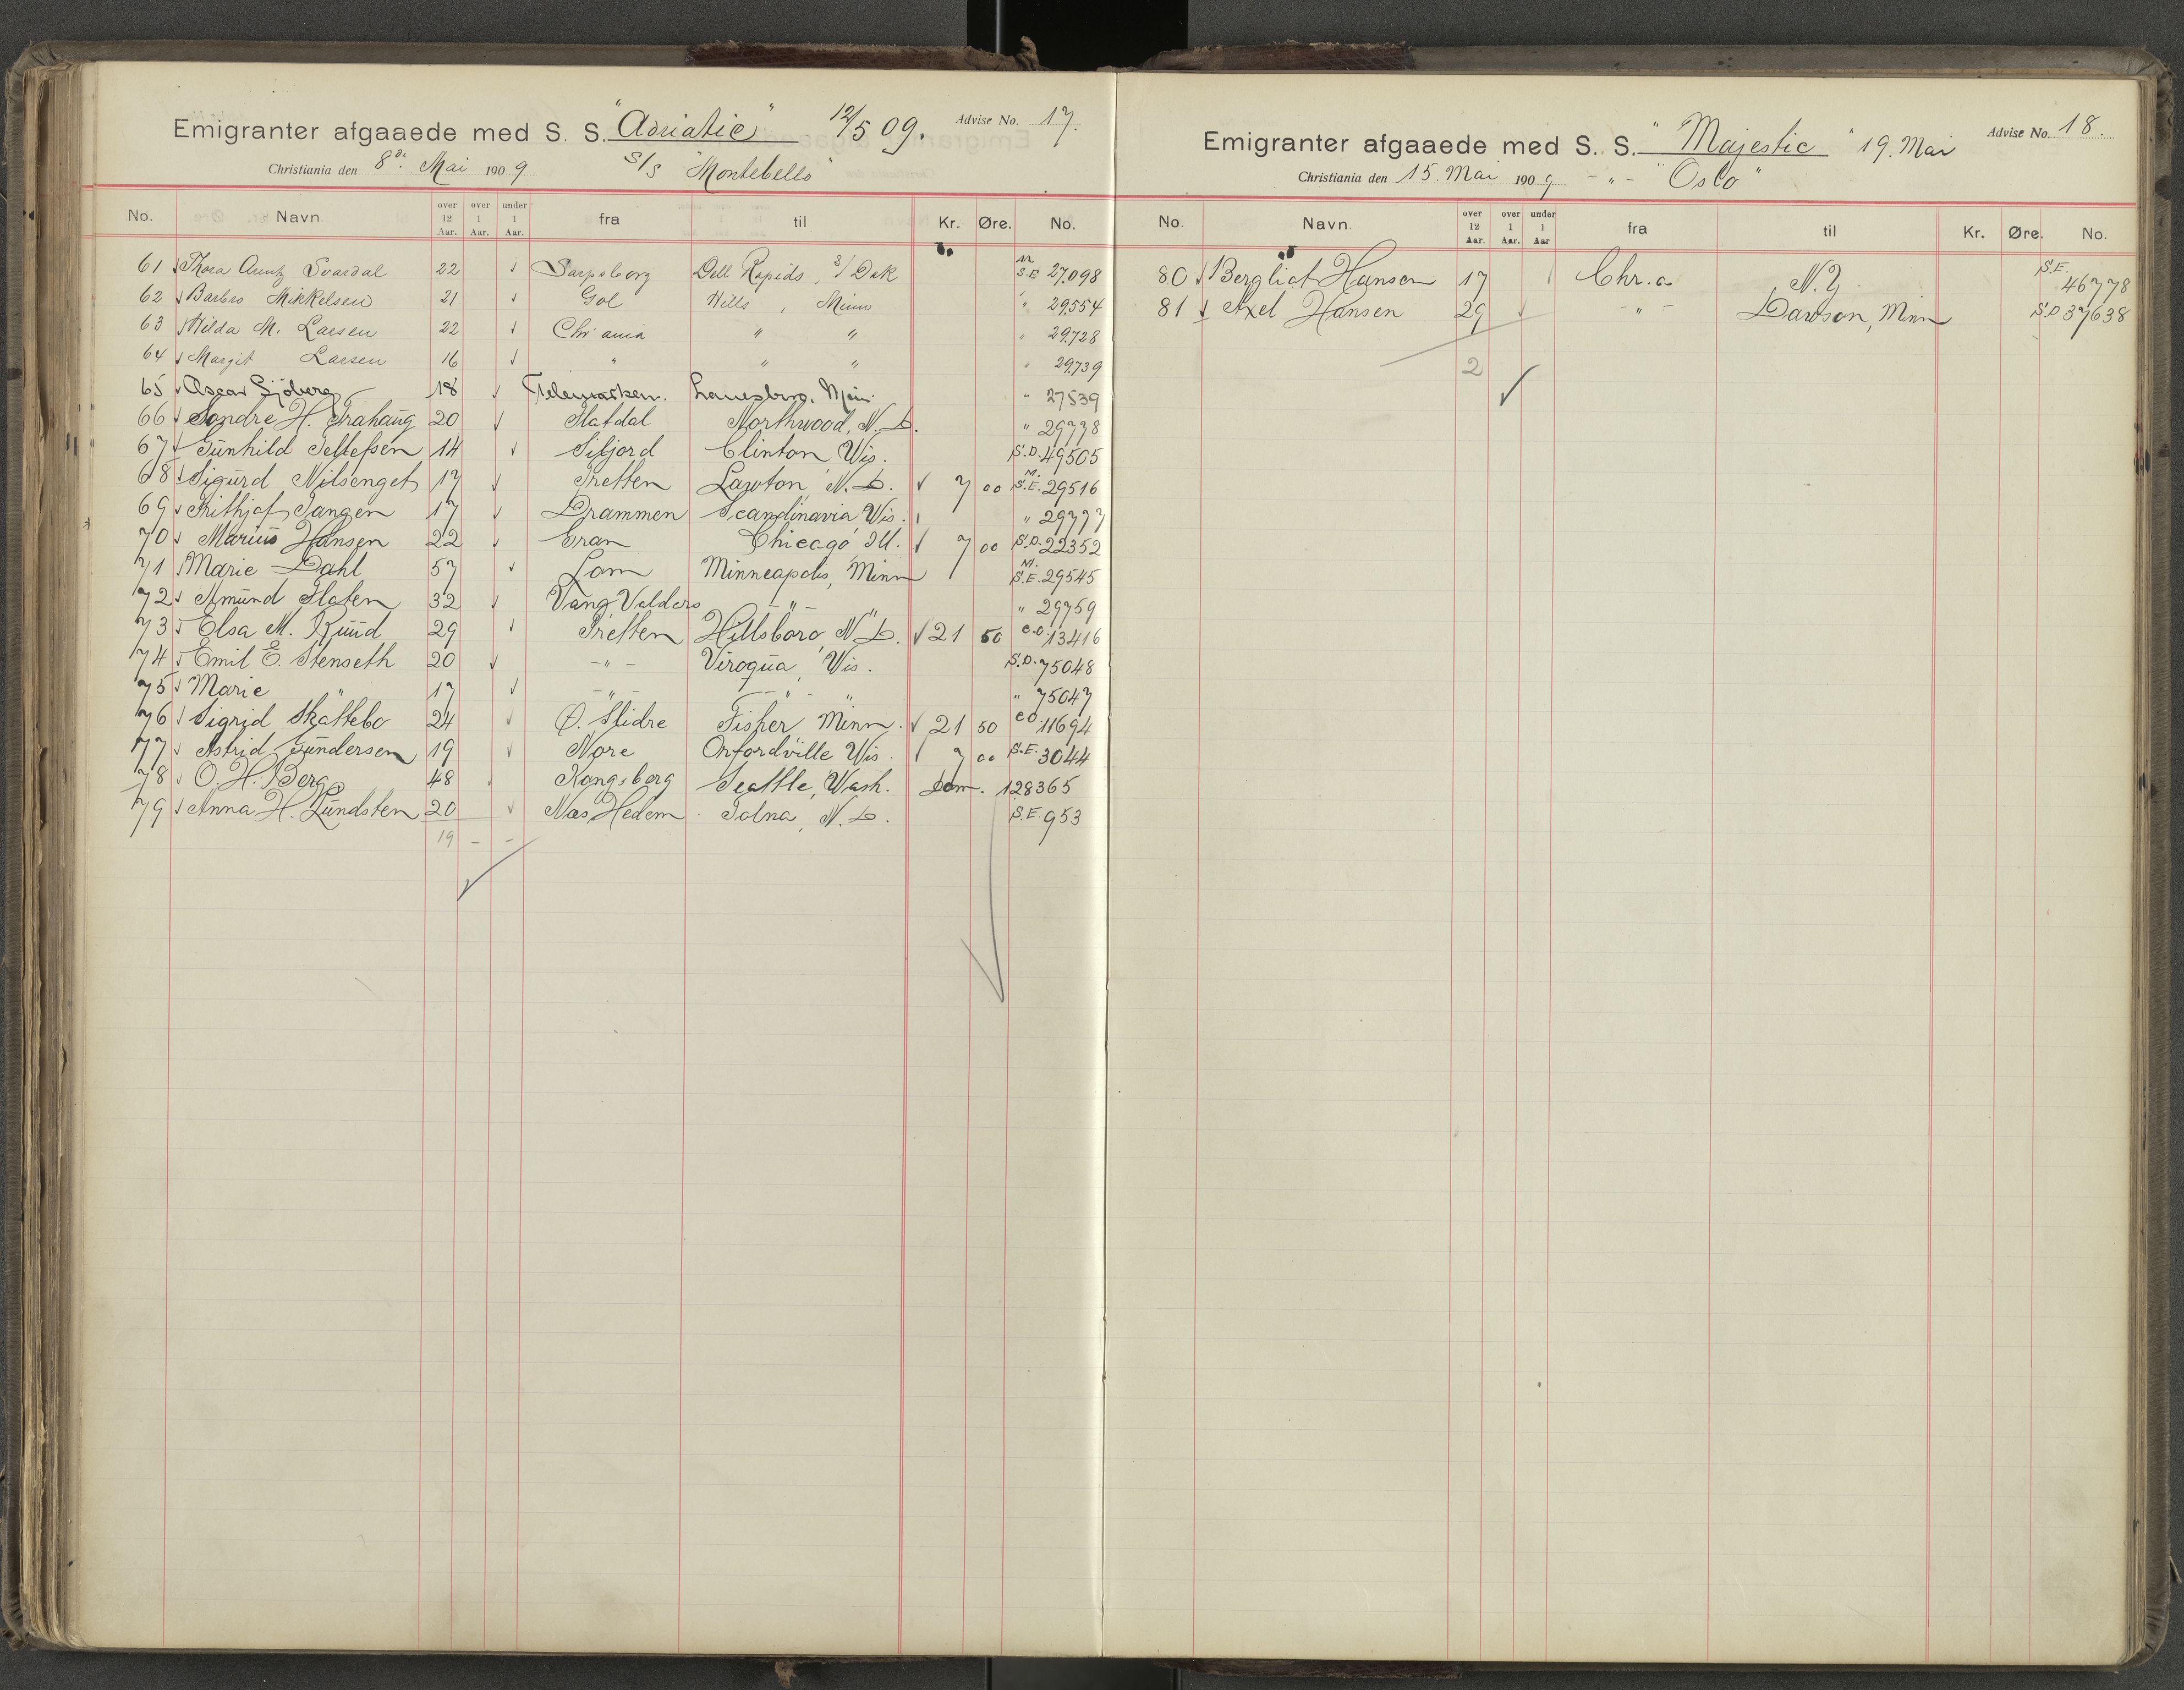 Emigranter afgaaede med S. S. "Adriatic" 12/5 09. Advise No. 17.
Christiania den 8de Mai 1909 S/S "Montebello"
No. Navn. over 12 Aar. over 1 Aar. under 1 Aar. fra til Kr. Øre. No.
61 Thora Arentz Svardal 22 Sarpsborg Dell Rapids, S/Dak M S.E 27098
62 Barbro Mikkelsen 21 Gol Hills, Minn " 29554
63 Hilda M. Larsen 22 Chr.ania " " " 29728
64 Margit Larsen 16 " " " " 29739
65 Oscar Sjöberg 18 Telemarken. Lanesbro. Minn. " 27539
66 Sondre H. Trahaug 20 Flatdal Northwood, N.D. " 29778
67 Gunhild Tellefsen 14 Siljord Clinton Wis. S.D. 49505
68 Sigurd Nilsenget 17 Tretten Lawton, N.D. 7 00 M. S.E. 29516
69 Frithjof Tangen 17 Drammen Scandinavia, Wis. " 29777
70 Marius Hansen 22 Gran Chicago, Ill. 7 00 S.D. 22352
71 Marie Dahl 57 Lom Minneapolis, Minn M. S.E. 29545
72 Amund Flaten 32 Vang Valders - " - " 29759
73 Elsa M. Ruud 29 Tretten Hillsboro, N.D. 21 50 C.O. 13416
74 Emil E. Stenseth 20 - " - Viroqua, Wis. S.D. 75048
75 Marie " 17 - " - - " - " " 75047
76 Sigrid Skattebo 24 Ø. Slidre Fisher Minn. 21 50 C.O. 11694
77 Astrid Gundersen 19 Nore Orfordville Wis. 7 00 S.E. 3044
78 O. H. Berg 48 Kongsberg Seattle, Wash. Dom. 128365
79 Anna H. Lundsten 20 Næs Hedem. Tolna, N.D. S.E. 953
19 - -
Emigranter afgaaede med S. S. "Majestic" 19. Mai Advise No. 18.
Christiania den 15. Mai 1909 - " - "Oslo"
No. Navn. over 12 Aar. over 1 Aar. under 1 Aar fra til Kr. Øre. No.
80 Bergliot Hansen 17 Chr.a N.Y. S.E. 46778
81 Axel Hansen 29 - " - Dawson, Minn S.D 37638
2